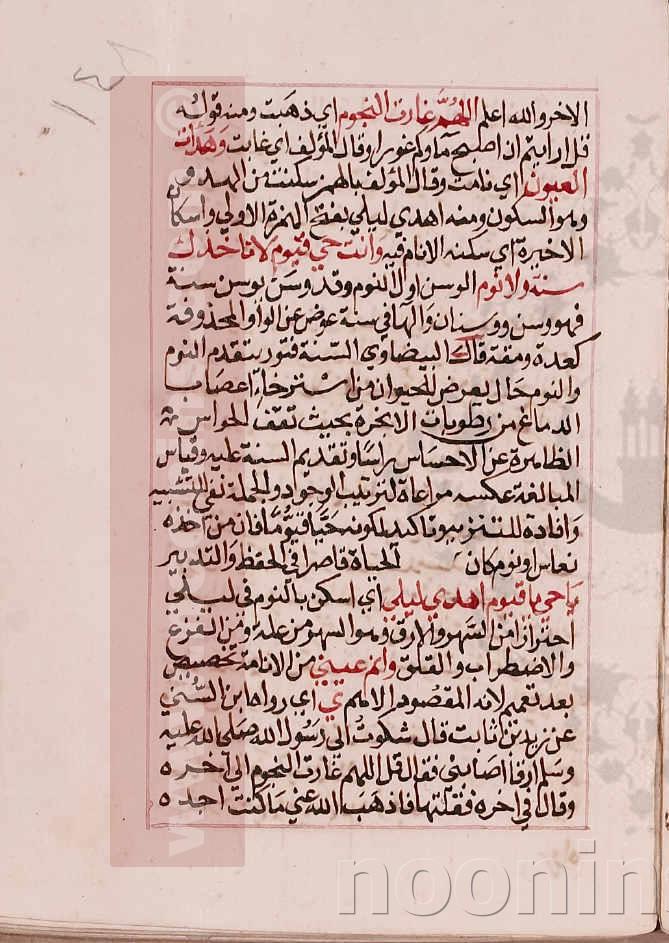 الاخر والله اعلم اللهم غارت النجوم اي ذهبت ومنه قوله
قل ارايتم ان اصبح ماؤكم غورا وقال المؤلف اي غابت وهدأت
العيون اي نامت وقال المؤلف بالهمز سكنت من الهدو
وهو السكون ومنه اهدي ليلي بفتح الهمزة الاولي واسكان
الاخيرة اي سكنه الانام فيه وانت حي قيوم لا تاخذك
سنة ولا نوم الوسن اول النوم وقد وسن يوسن سنة
فهو وسن ووسنان والها في سنة عوض عن الواو المحذوفة
كعدة ومقة قال البيضاوي السنة فتور يتقدم النوم
والنوم حال يعرض للحيوان من استرخاء اعصاب
الدماغ من رطوبات الابخرة بحيث تقف الحواس
الظاهرة عن الاحساس راسا وتقديم السنة عليه وقياس
المبالغة عكسه مراعاة لترتيب الوجود والجملة نفي للتشبيه
وافادة للتنزيه وتاكيد لكونه حيا قيوما فان من اخذه
نعاس او نوم كان الحياة قاصرا في الحفظ والتدبير
يا حي يا قيوم اهدي ليلي اي اسكن بالنوم في ليلي
احترازا من السهر والارق وهو السهر من علة ومن الفزع
والاضطراب والقلق وانم عيني من الانامة تخصيص
بعد تعميم لانه المقصود الاهم ي اي رواه ابن السني
عن زيد بن ثابت قال شكوت الي رسول الله صلي الله عليه
وسلم ارقا اصابني فقال قل اللهم غارت النجوم الي آخره
وقال في اخره فقلتها فاذهب الله عني ما كنت اجد ه
noonin